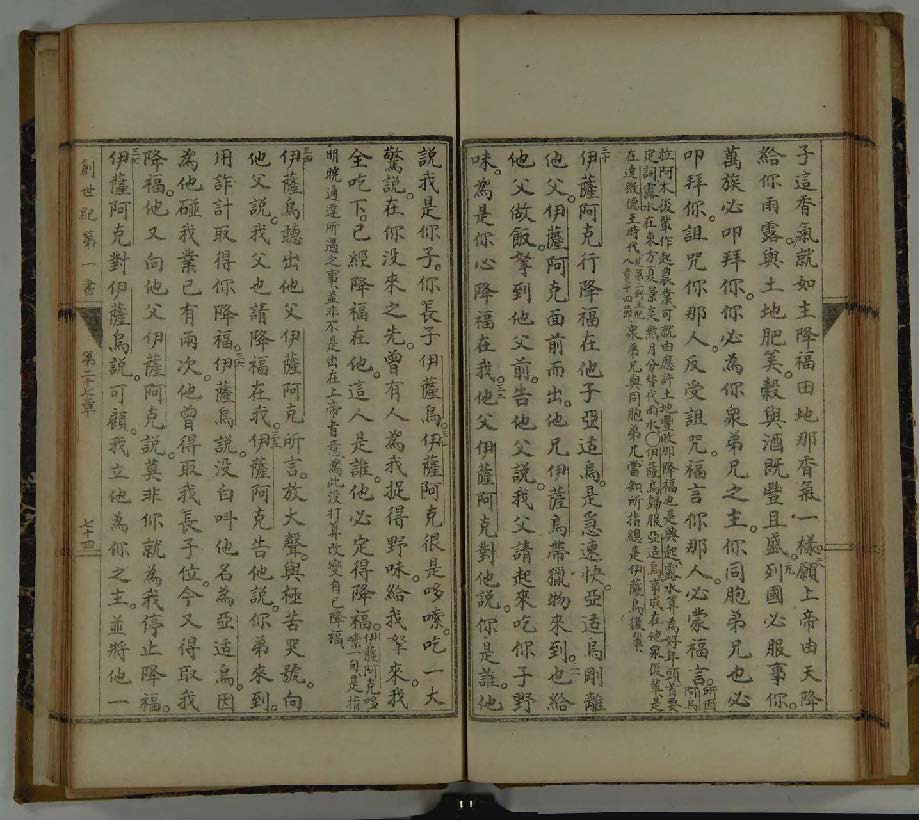 子這香氣就如主降福田地那香氣一樣。願上帝由天降
給你雨露。與土地肥美。穀與酒既豐且盛。列國必服事你。
萬族必叩拜你。你必為你衆弟兄之主。你同胞弟兄也必
叩拜你。詛咒你那人。反受詛咒。福言你那人。必蒙福言。所因阿烏
拉阿木後輩作起農業可就由應許土地豐收那降福也是與起露水算為好年頭首要
定詞露水在東方
在達微德王時代 衆弟兄與同胞弟兄當知所指總是伊薩烏後輩
伊薩阿克行降福在他子亞适烏。是急速快。亞适烏剛離
他父。伊薩阿克面前而出。他兄伊薩烏帶獵物來到。也給
他父做飯。拏到他父前。告他父說。我父請起來吃你子野
味。為是你心降福在我。他父伊薩阿克對他說。你是誰。他
說我是你子。你長子伊薩烏。伊薩阿克很是哆嗦。吃一大
驚說。在你沒來之先。曾有人為我捉得野味。給我拏來。我
全吃下。已經降福在他。這人是誰。他必定得降福。伊薩阿克哆嗦一句是指
明曉通達所遇之事並非不是出在上帝旨意為此沒打算改變自己降福
三四 伊薩烏聽出他父伊薩阿克所言。放大聲。與極苦哭號。向
他父說。我父也請降福在我。伊薩阿克告他說。你弟來到。
用詐計取得你降福。伊薩烏說。沒白呌他名為亞适烏。因
為他碰我業已有兩次。他曾得取我長子位。今又得取我
降福。他又向他父伊薩阿克說。莫非你就為我停止降福。
伊薩阿克對伊薩烏說。可顧。我立他為你之主。並將他一
創世紀第一書 第二十七章 七十四